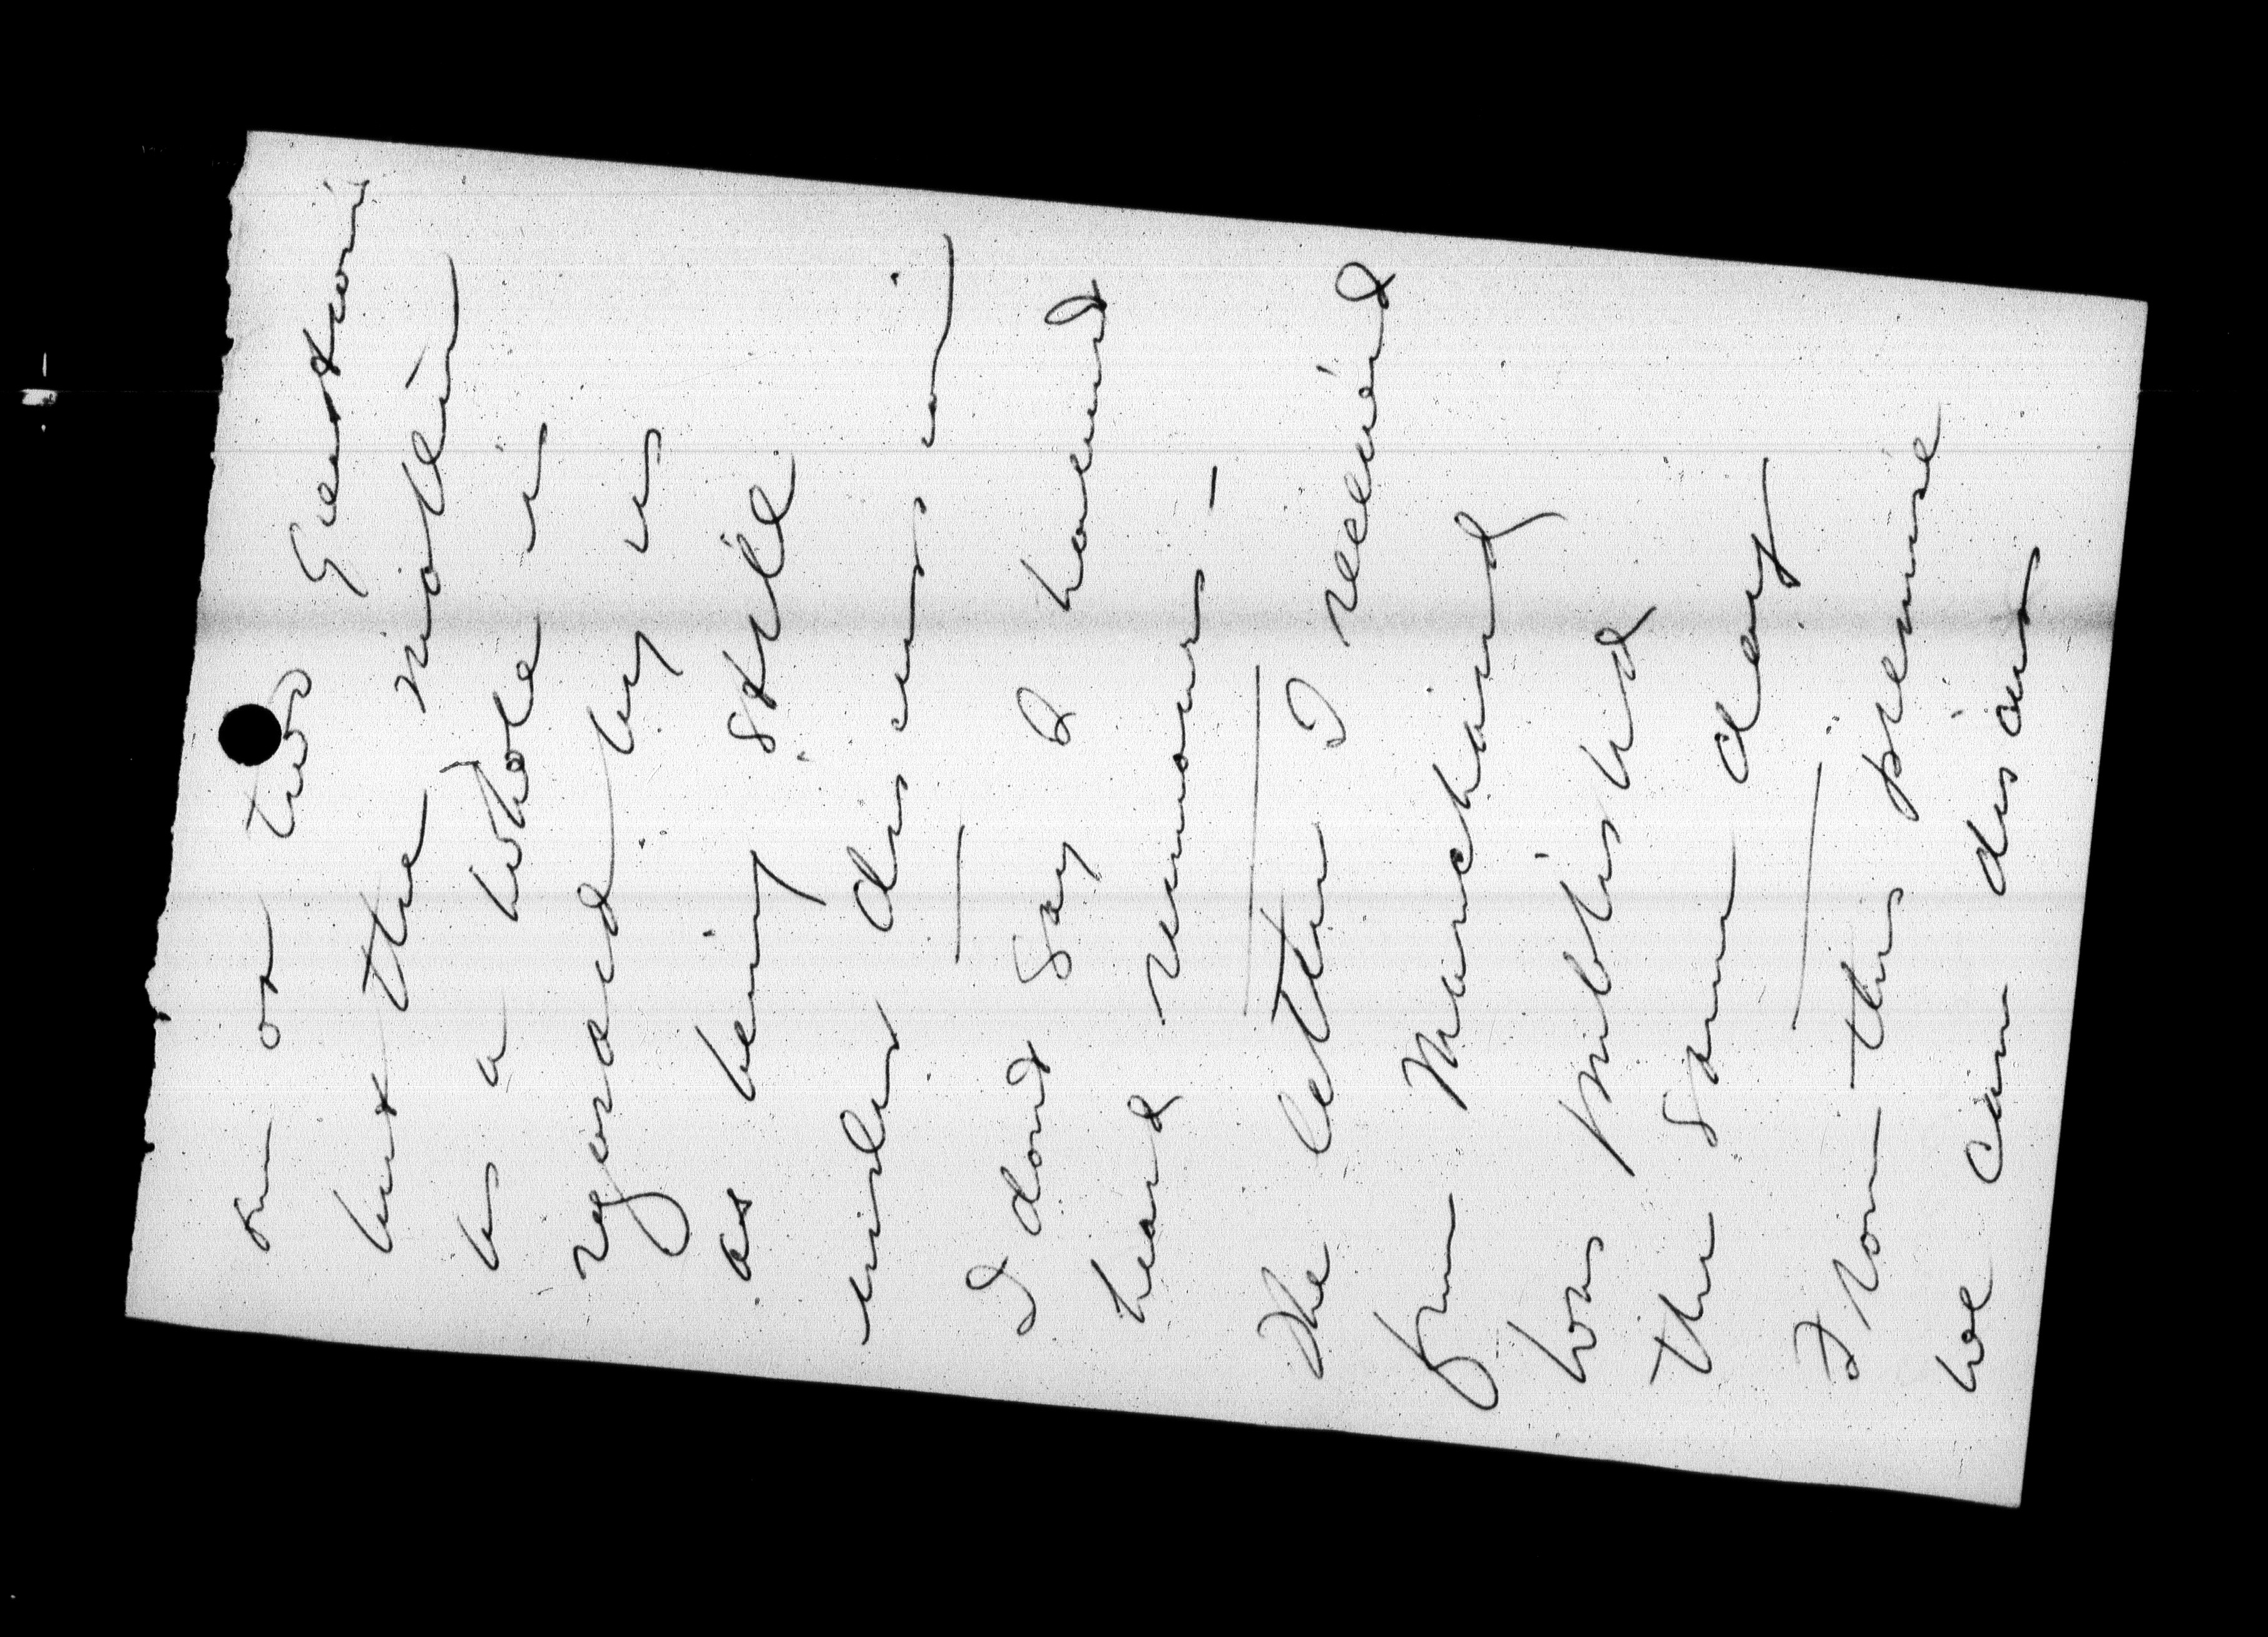 on or two questions
but the matter
as a whole is
regarded by us
as being still
under discussion
I dont say I havent
heard rumours –
The letter I received
from Marchand
was published
the same day
From this premise
we can discount